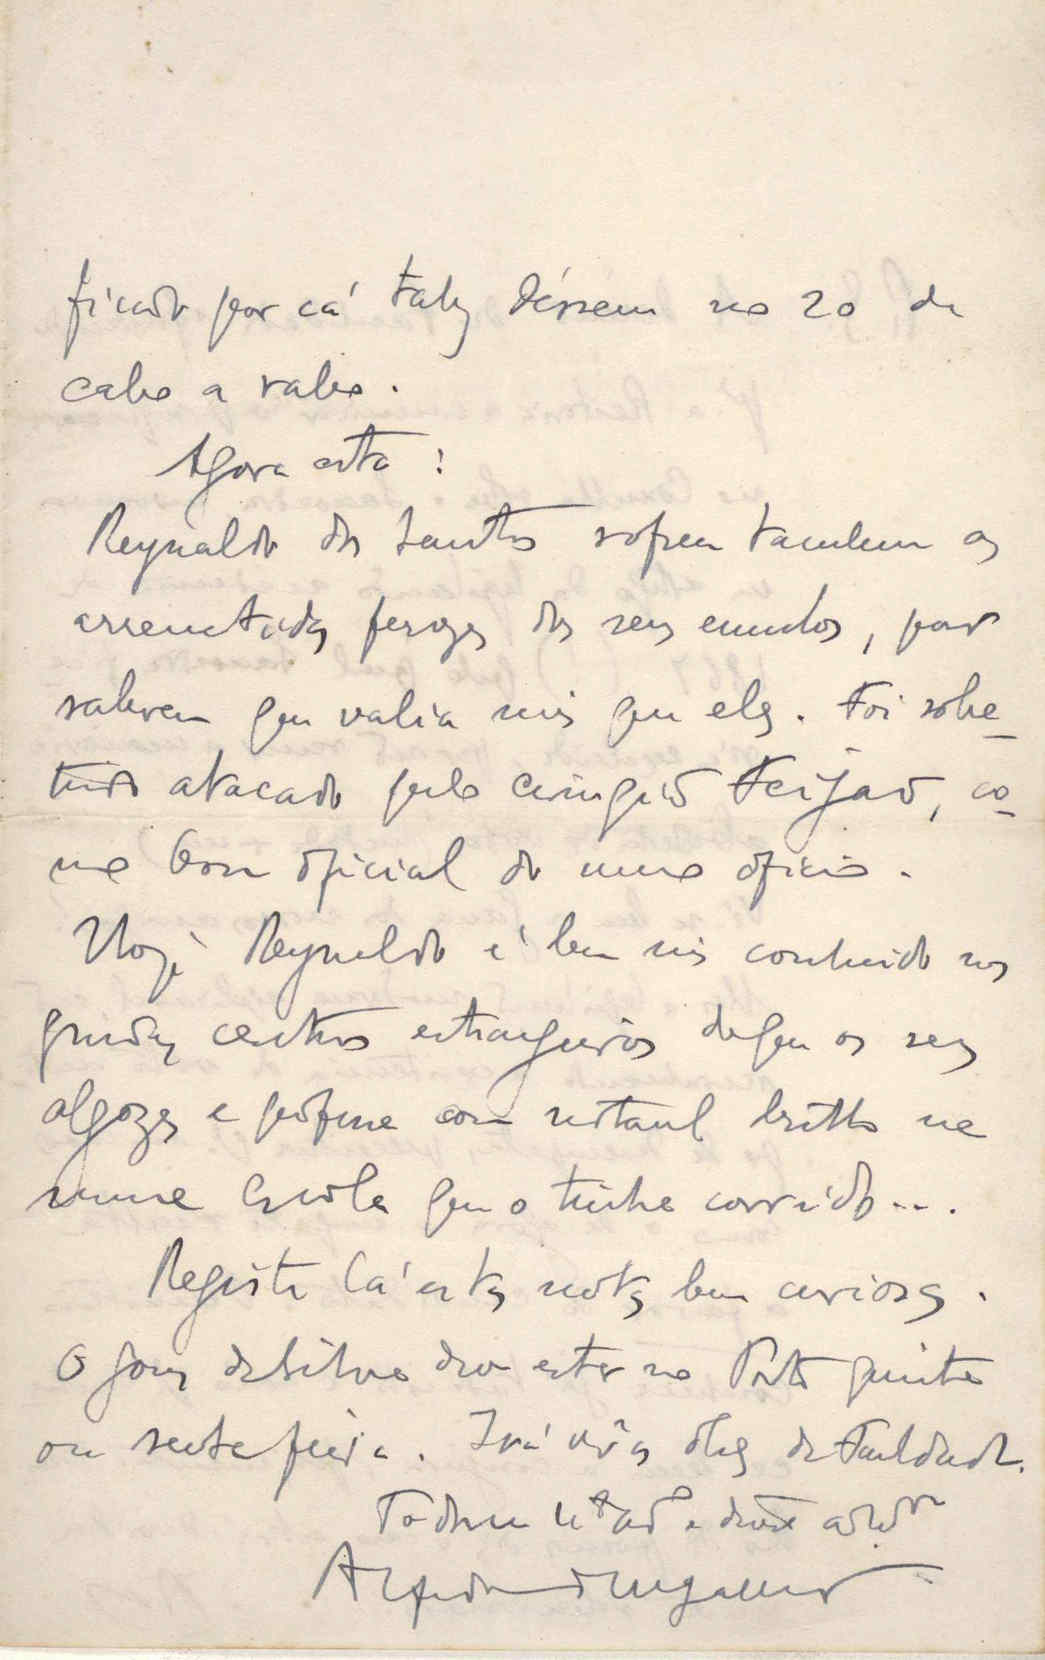 ficado por cá talvez déssem no 20 de
cabo a rabo.
Agora esta:
Reynaldo dos Santos sofreu tambem as
arremetidas ferozes dos seus emulos, por
saberem que valia mais que eles. Foi sobre-
tudo atacado pelo cirurgião Feijão, co-
mo bom oficial do mesmo oficio.
Hoje Reynaldo é bem mais conhecido nos
grandes centros estrangeiros do que os seus
algozes e professa com notavel brilho na
mesma Escola que o tinha corrido...
Registe lá estas notas bem curiosas.
O Gomes da Silva deve estar no Porto quinta
ou sexta feira. Irá vêr as obras da Faculdade.
Todo seu
Alfredo de Magalhães